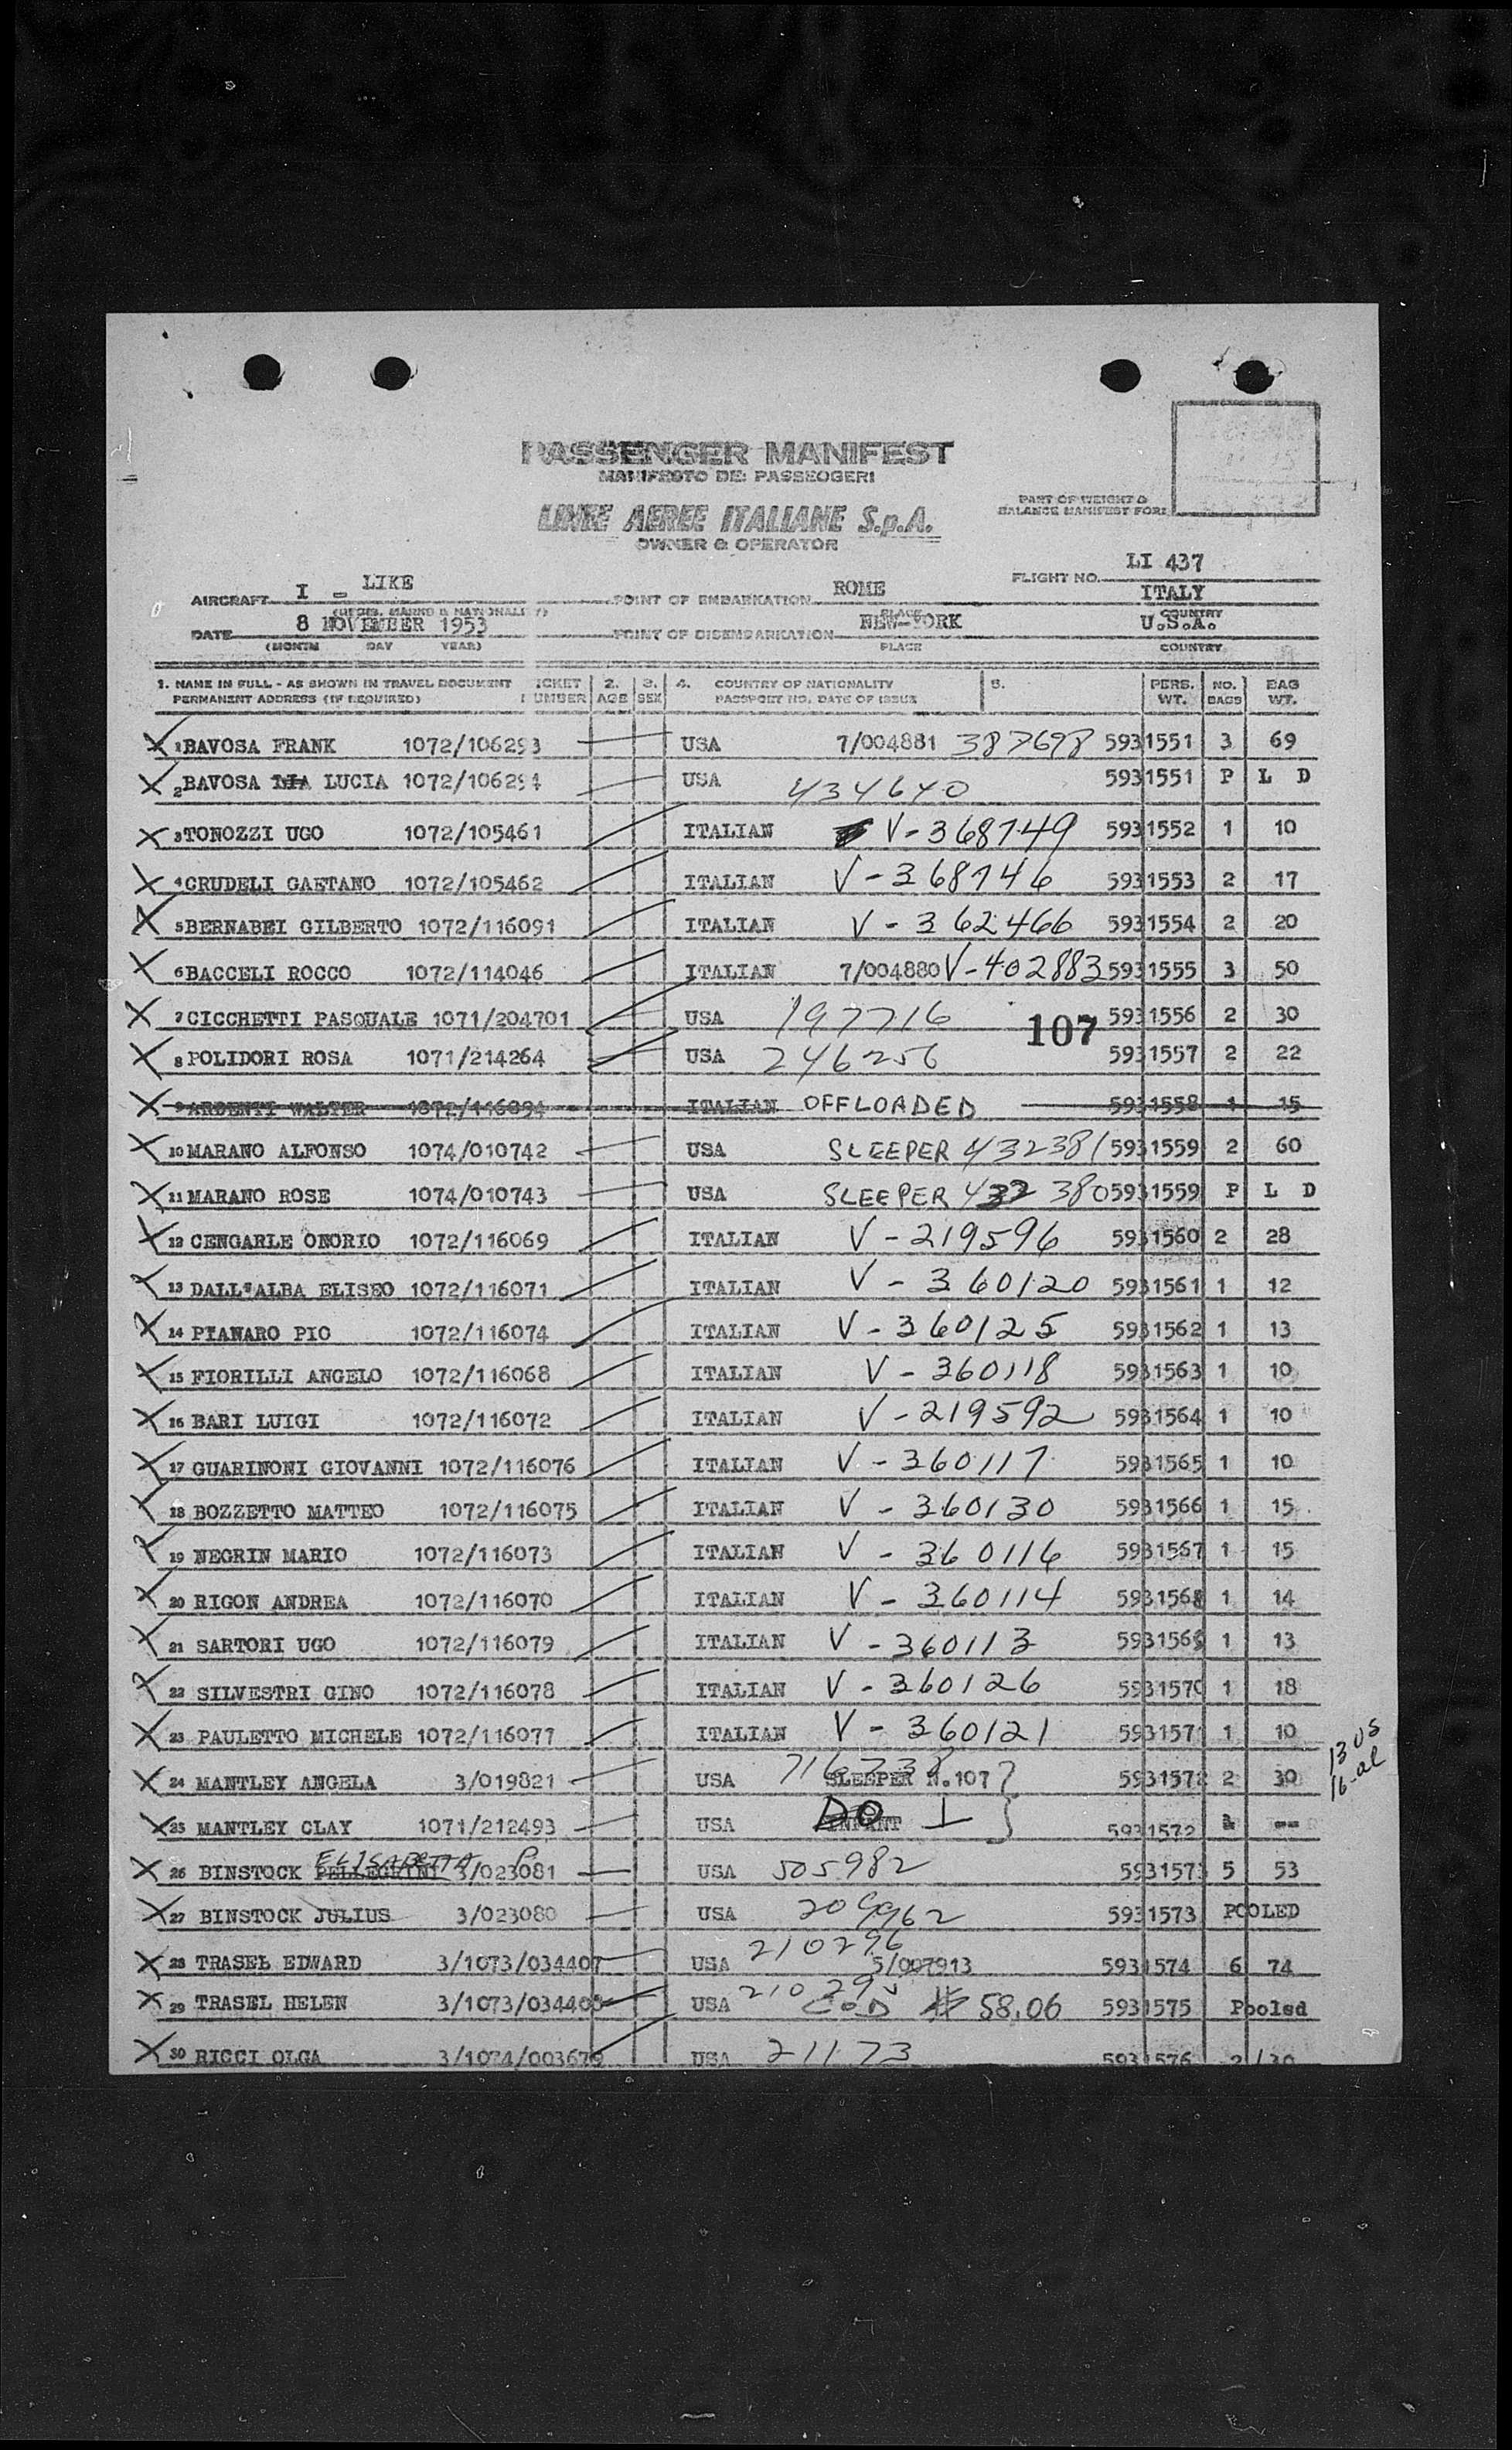 PASSENGER MANIFEST
MANIFESTO DEI PASSEGGERI
LINEE AEREE ITALIANE S.p.A.
OWNER & OPERATOR
PART OF WEIGHT &
BALANCE MANIFEST FOR:
AIRCRAFT I - LIKE POINT OF EMBARKATION ROME FLIGHT NO. LI 437
ITALY
(REGIS. MARKS & NATIONALITY) PLACE COUNTRY
DATE 8 NOVEMBER 1953 POINT OF DISEMBARKATION NEW-YORK U.S.A.
(MONTH DAY YEAR) PLACE COUNTRY
1. NAME IN FULL - AS SHOWN IN TRAVEL DOCUMENT ICKET 2. 3. 4. COUNTRY OF NATIONALITY 5. PERS. NO. BAG
PERMANENT ADDRESS (IF REQUIRED) UMBER AGE SEX PASSPORT NO. DATE OF ISSUE WT. BAGS WT.
1 BAVOSA FRANK 1072/106293 USA 7/004881 387698 5931551 3 69
2 BAVOSA LIA LUCIA 1072/106294 USA 434640 5931551 P L D
3 TONOZZI UGO 1072/105461 ITALIAN V-368749 5931552 1 10
4 CRUDELI GAETANO 1072/105462 ITALIAN V-368746 5931553 2 17
5 BERNABEI GILBERTO 1072/116091 ITALIAN V-362466 5931554 2 20
6 BACCELI ROCCO 1072/114046 ITALIAN 7/004880 V-402883 5931555 3 50
7 CICCHETTI PASQUALE 1071/204701 USA 197716 107 5931556 2 30
8 POLIDORI ROSA 1071/214264 USA 246256 5931557 2 22
9 ARDENTI WALTER 1072/116094 ITALIAN OFFLOADED 5931558 1 15
10 MARANO ALFONSO 1074/010742 USA SLEEPER 432381 5931559 2 60
11 MARANO ROSE 1074/010743 USA SLEEPER 432380 5931559 P L D
12 CENGARLE ONORIO 1072/116069 ITALIAN V-219596 5931560 2 28
13 DALL'ALBA ELISEO 1072/116071 ITALIAN V-360120 5931561 1 12
14 PIANARO PIO 1072/116074 ITALIAN V-360125 5931562 1 13
15 FIORILLI ANGELO 1072/116068 ITALIAN V-360118 5931563 1 10
16 BARI LUIGI 1072/116072 ITALIAN V-219592 5931564 1 10
17 GUARINONI GIOVANNI 1072/116076 ITALIAN V-360117 5931565 1 10
18 BOZZETTO MATTEO 1072/116075 ITALIAN V-360130 5931566 1 15
19 NEGRIN MARIO 1072/116073 ITALIAN V-360116 5931567 1 15
20 RIGON ANDREA 1072/116070 ITALIAN V-360114 5931568 1 14
21 SARTORI UGO 1072/116079 ITALIAN V-360113 5931569 1 13
22 SILVESTRI GINO 1072/116078 ITALIAN V-360126 5931570 1 18
23 PAULETTO MICHELE 1072/116077 ITALIAN V-360121 5931571 1 10
13 US
16-al
24 MANTLEY ANGELA 3/019821 USA 716738 SLEEPER N.107 5931572 2 30
25 MANTLEY CLAY 1071/212493 USA INFANT DO 5931572 --
26 BINSTOCK PELLEGRINI ELISABETTA P. 3/023081 USA 505982 5931573 5 53
27 BINSTOCK JULIUS 3/023080 USA 5931573 POOLED
28 TRASEL EDWARD 3/1073/034407 USA 210296 5/007913 5931574 6 74
29 TRASEL HELEN 3/1073/034408 USA 210295 COD $ 58.06 5931575 Pooled
30 RICCI OLGA 3/1074/003679 USA 21173 5931576 2 30